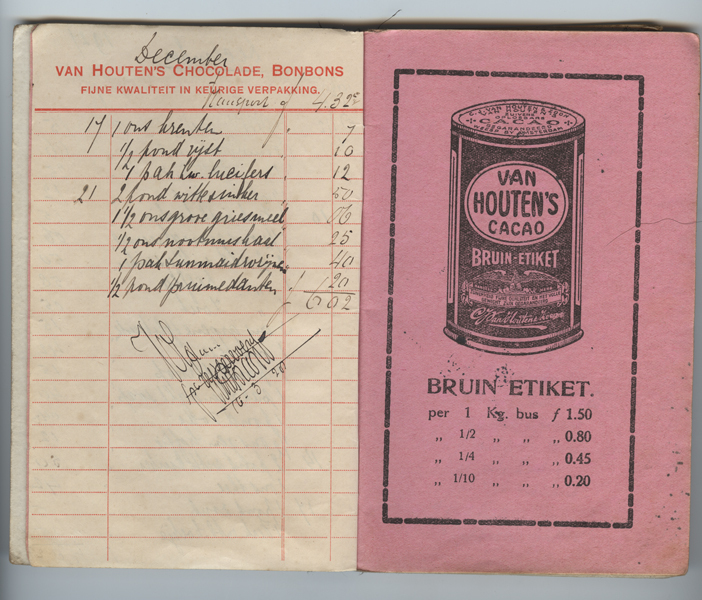 December
VAN HOUTEN'S CHOCOLADE, BONBONS
FIJNE KWALITEIT IN KEURIGE VERPAKKING.
Transport f 4.32
17 1 ons krenten 7
1/2 pond rijst 10
1 pak zw. lucifers 12
21 2 pond witte suiker 50
1 1/2 ons grove griesmeel 06
1/2 ons nootmuskaat 25
1 pak sunmaidrozijnen 40
1/2 pond pruimedanten 20
6.02
CACAO
VAN
HOUTEN'S
CACAO
BRUIN-ETIKET
BRUIN ETIKET.
per 1 Kg. bus f 1.50
„ 1/2 „ „ „ 0.80
„ 1/4 „ „ „ 0.45
„ 1/10 „ „ „ 0.20